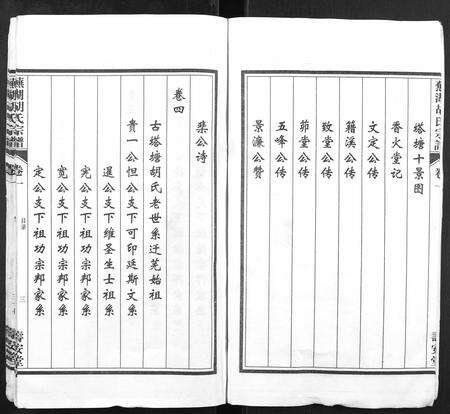 塔塘十景图
香火堂记
文定公传
籍溪公传
致堂公传
茆堂公传
五峰公传
景濂公赞
梁公诗
卷四
古塔塘胡氏老世系迁芜始祖
贵一公怛公支下可印廷斯文系
暹公支下维圣生士祖系
宪公支下祖功宗邦家系
宽公支下祖功宗邦家系
定公支下祖功宗邦家系
芜湖胡氏宗谱
卷一
目录
三
善安堂